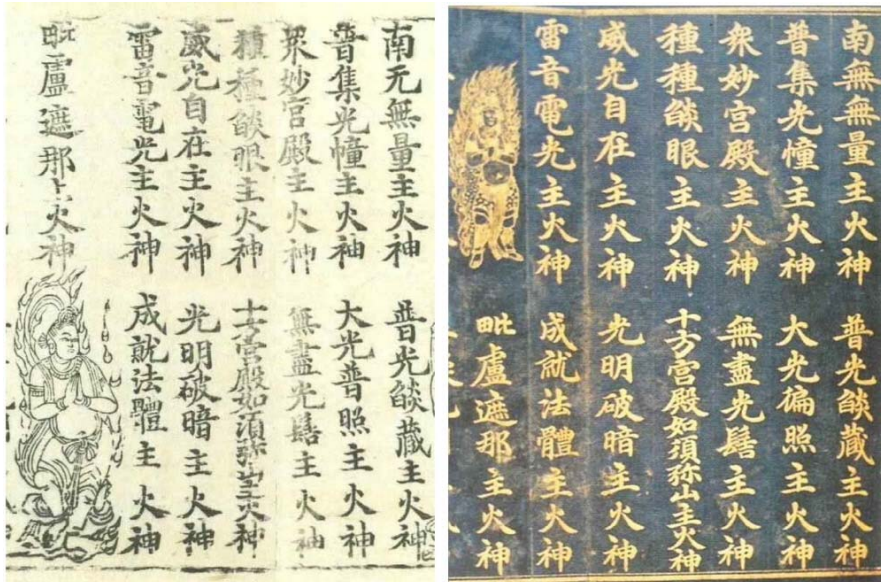 南无無量主火神
普光燄藏主火神
普集光幢主火神
大光普照主火神
衆妙宫殿主火神
無盡光髻主火神
種種燄眼主火神
十方宫殿如須弥山主火神
威光自在主火神
光明破暗主火神
雷音電光主火神
成就法體主火神
毗盧遮那主火神
南無無量主火神
普光燄藏主火神
普集光幢主火神
大光徧照主火神
衆妙宫殿主火神
無盡光髻主火神
種種燄眼主火神
十方宫殿如須弥山主火神
威光自在主火神
光明破暗主火神
雷音電光主火神
成就法體主火神
毗盧遮那主火神